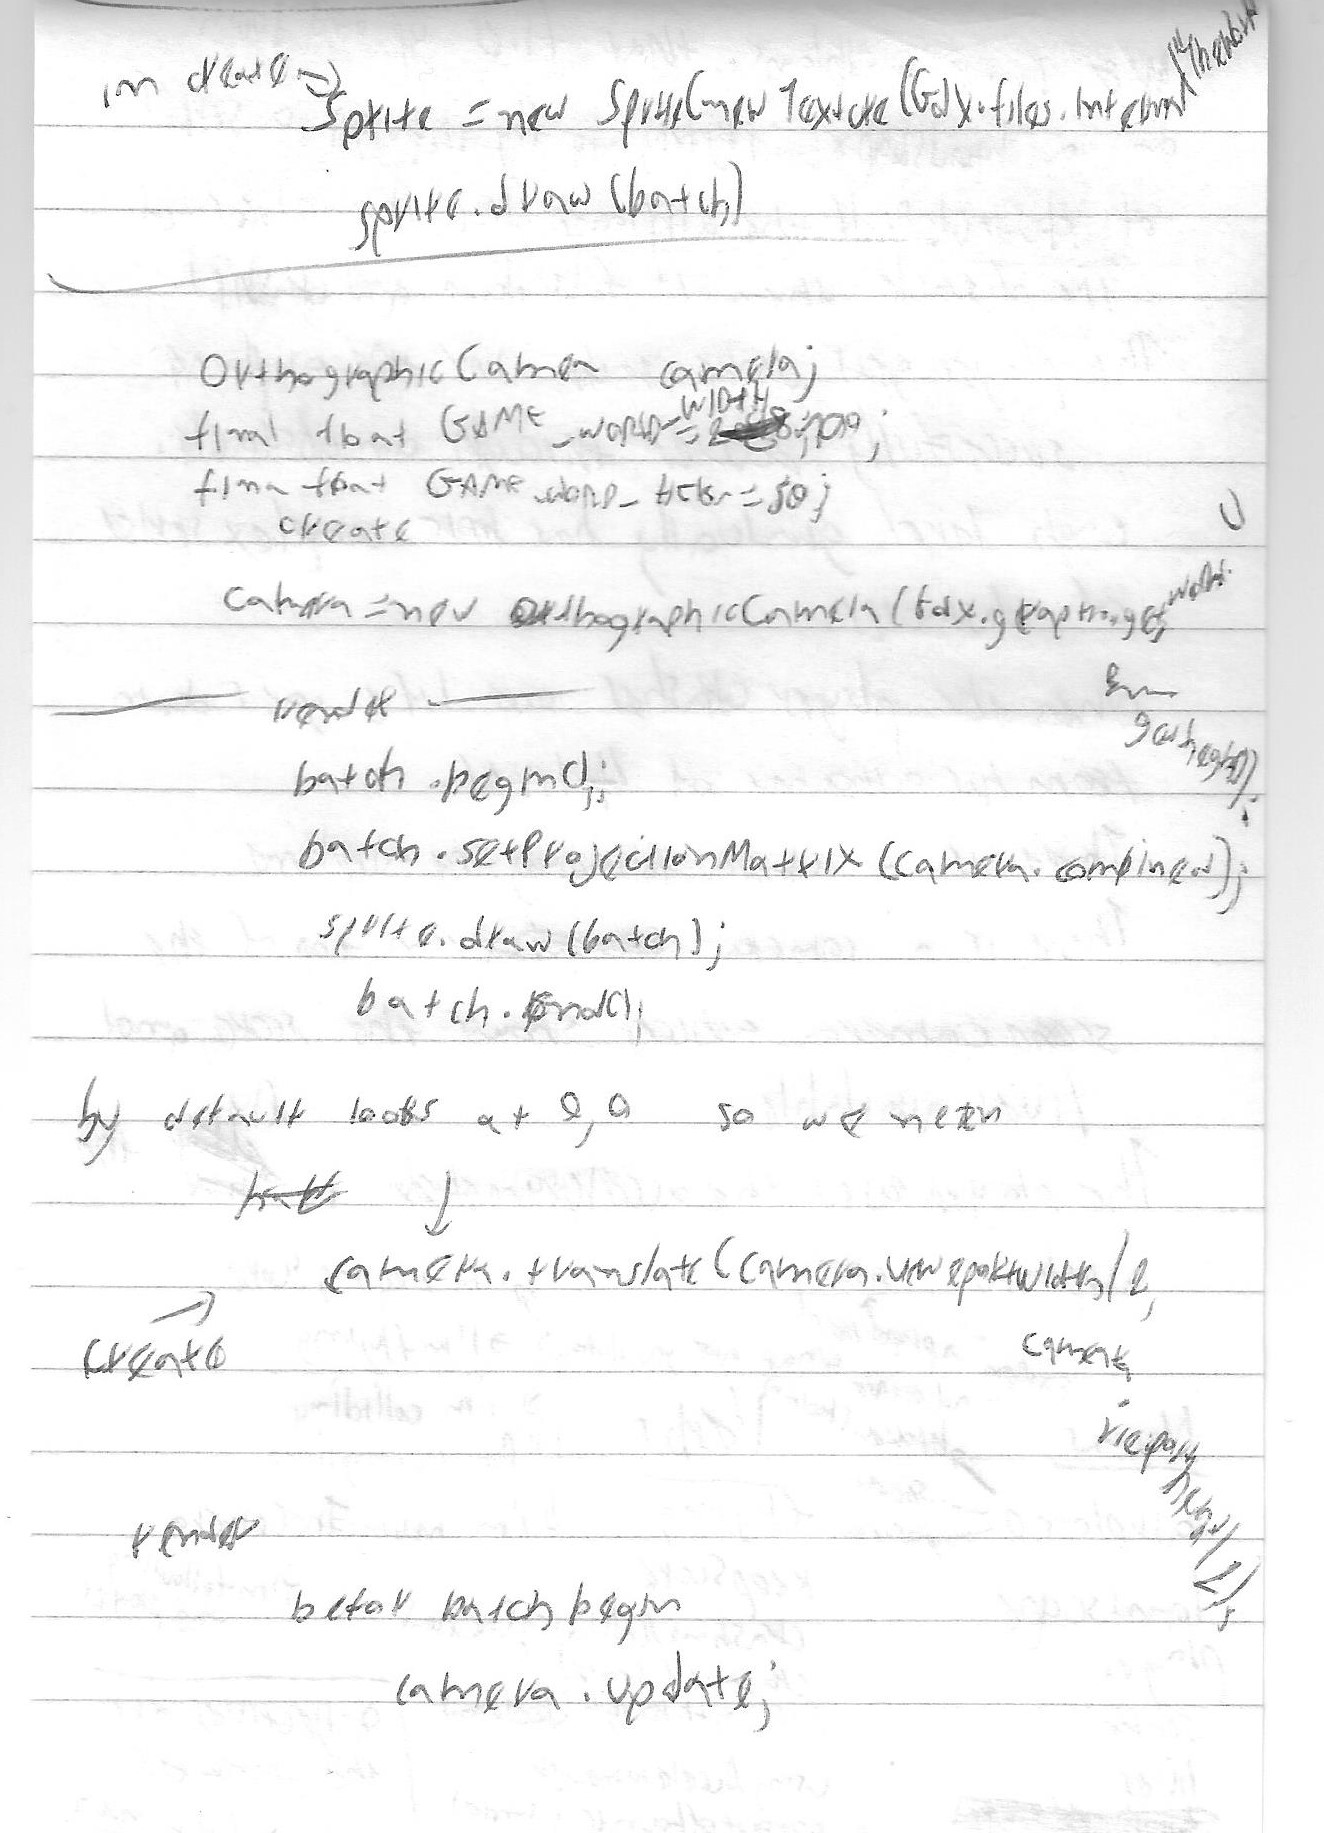 in create →
Sprite = new Sprite(new Texture(Gdx.files.internal
sprite.draw(batch)
OrthographicCamera camera;
final float GAME_WORLD_WIDTH = 100;
final float GAME_WORLD_ = 50;
create
camera = new OrthographicCamera(Gdx.graphics.get
getheight());
render
batch.begin();
batch.setProjectionMatrix(camera.combined);
sprite.draw(batch);
batch.end();
by default looks at 0,0 so we
↓
camera.translate(camera.viewportwidth/2,
camera
.
viewport
height/2);
→
create
render
befor batch begin
camera.update;